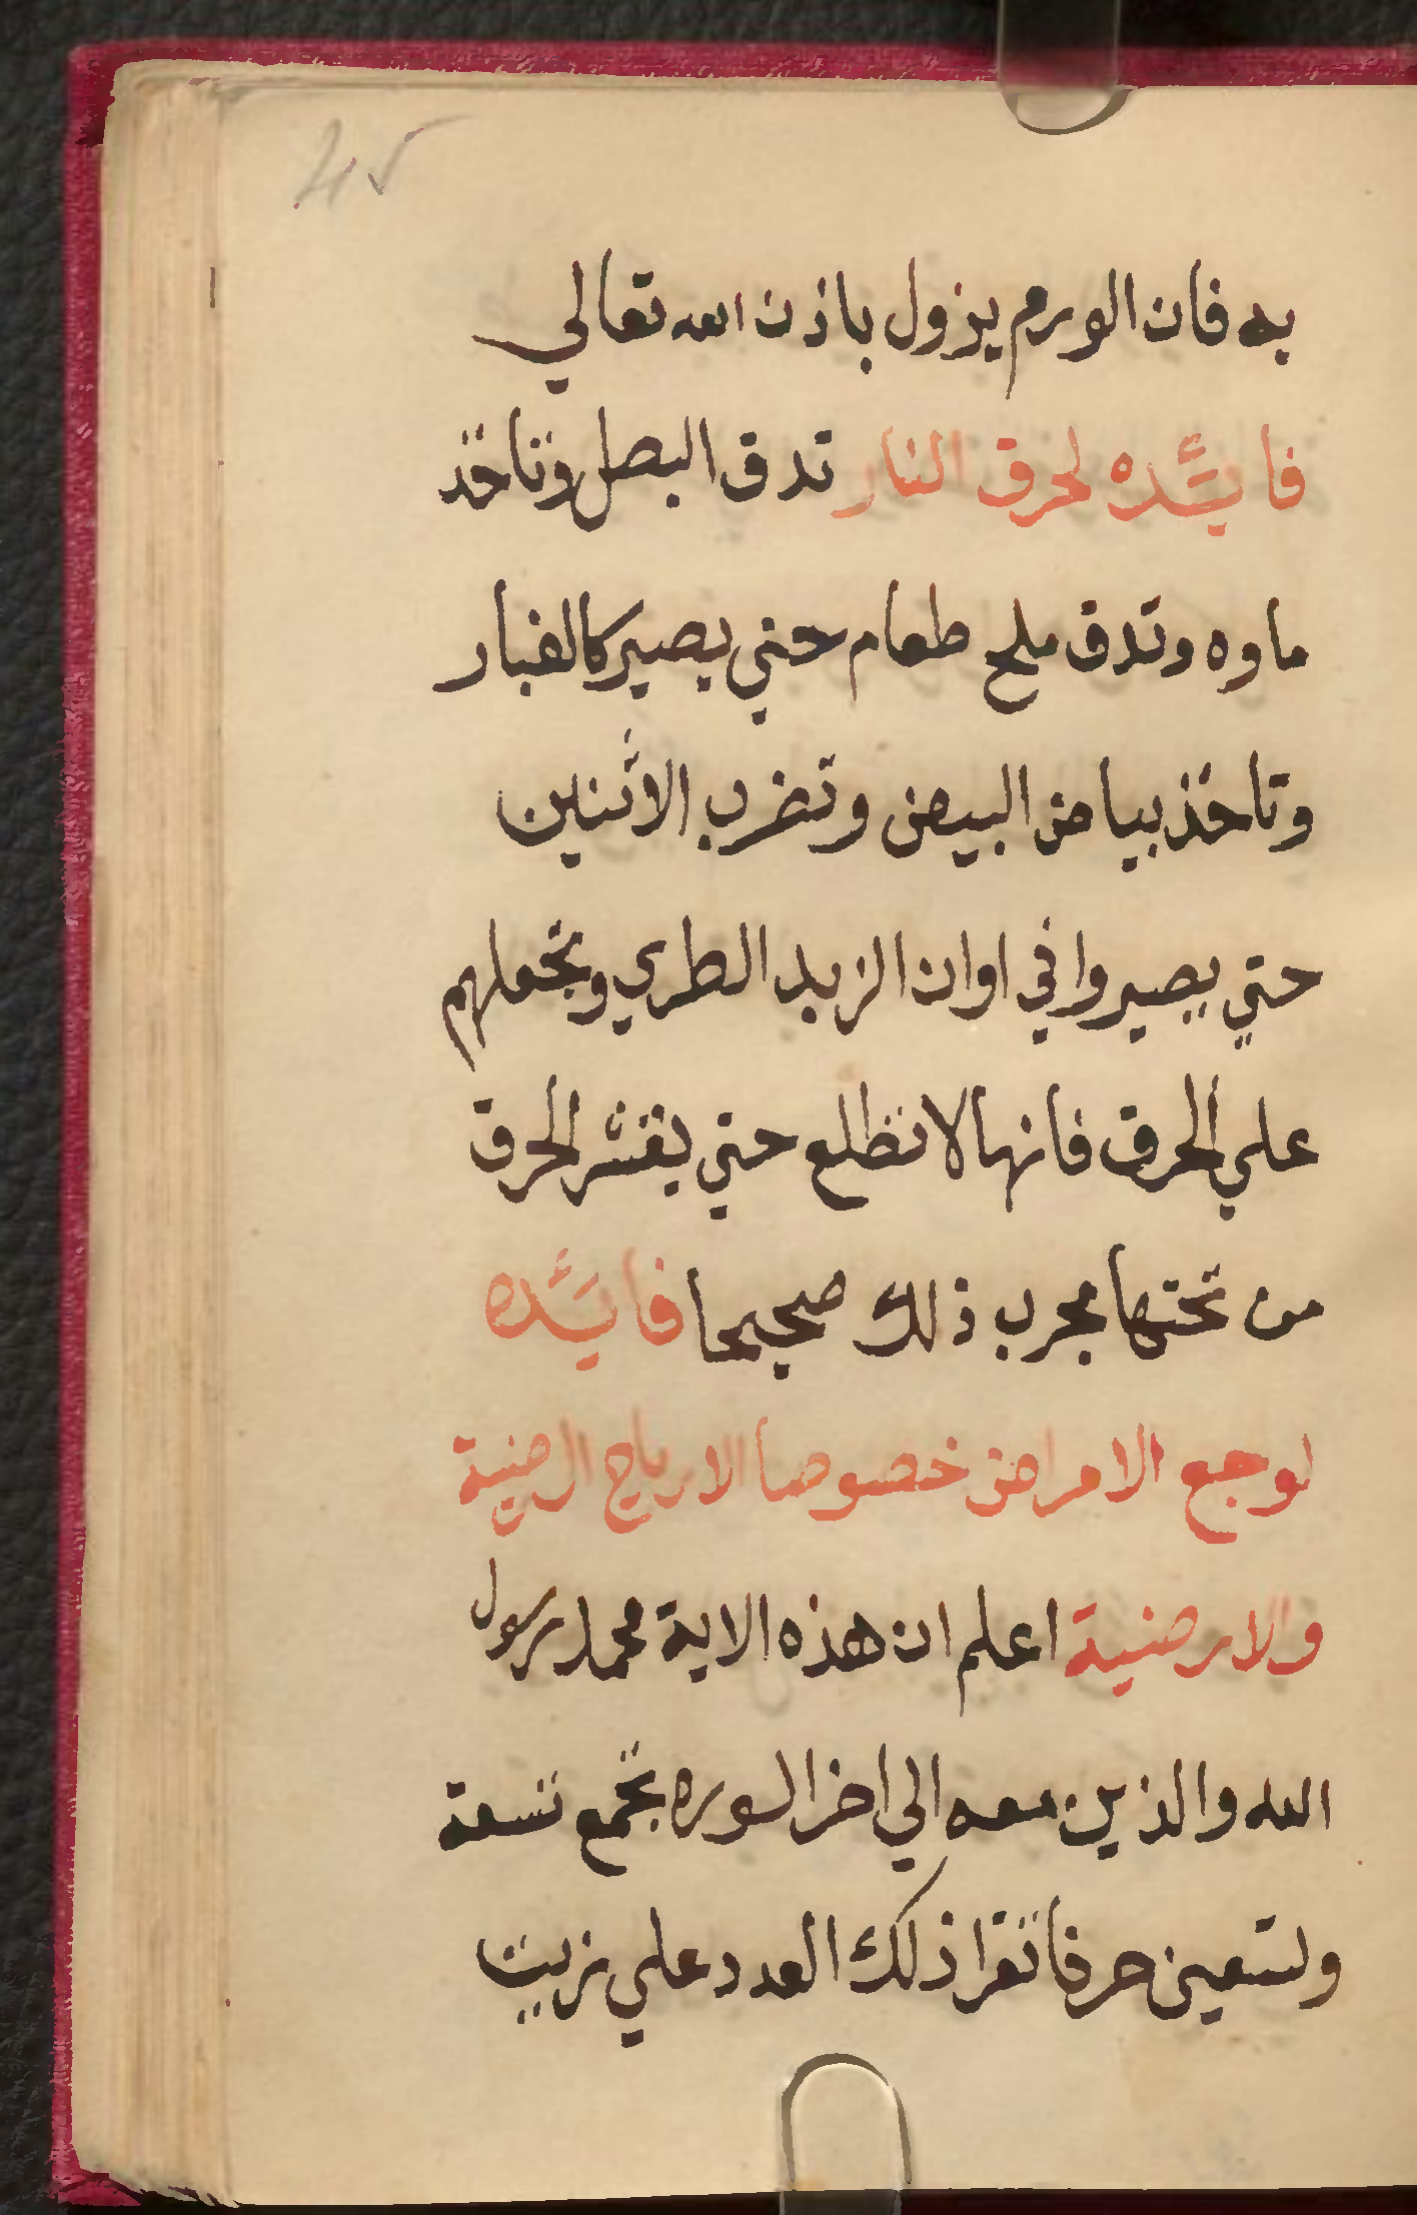 به فان الورم يزول باذن الله تعالي
فايئده لحرق النار تدق البصل وتاخذ
ماوه وتدق ملح طعام حتي يصير كالغبار
وتاخذ بياض البيض وتضرب الاثنين
حتي يصيروا في اوان الزبد الطري وتجعلهم
علي الحرق فانها لا تطلع حتي يقشر الحرق
من تحتها مجرب ذلك صحيحا فايئده
لوجع الامراض خصوصا الارياح الرضية
والارضية اعلم ان هذه الاية محمد رسول
الله والذين معه الي اخر السوره تجمع تسعة
وتسعين حرفا تقرا ذلك العدد علي زيت